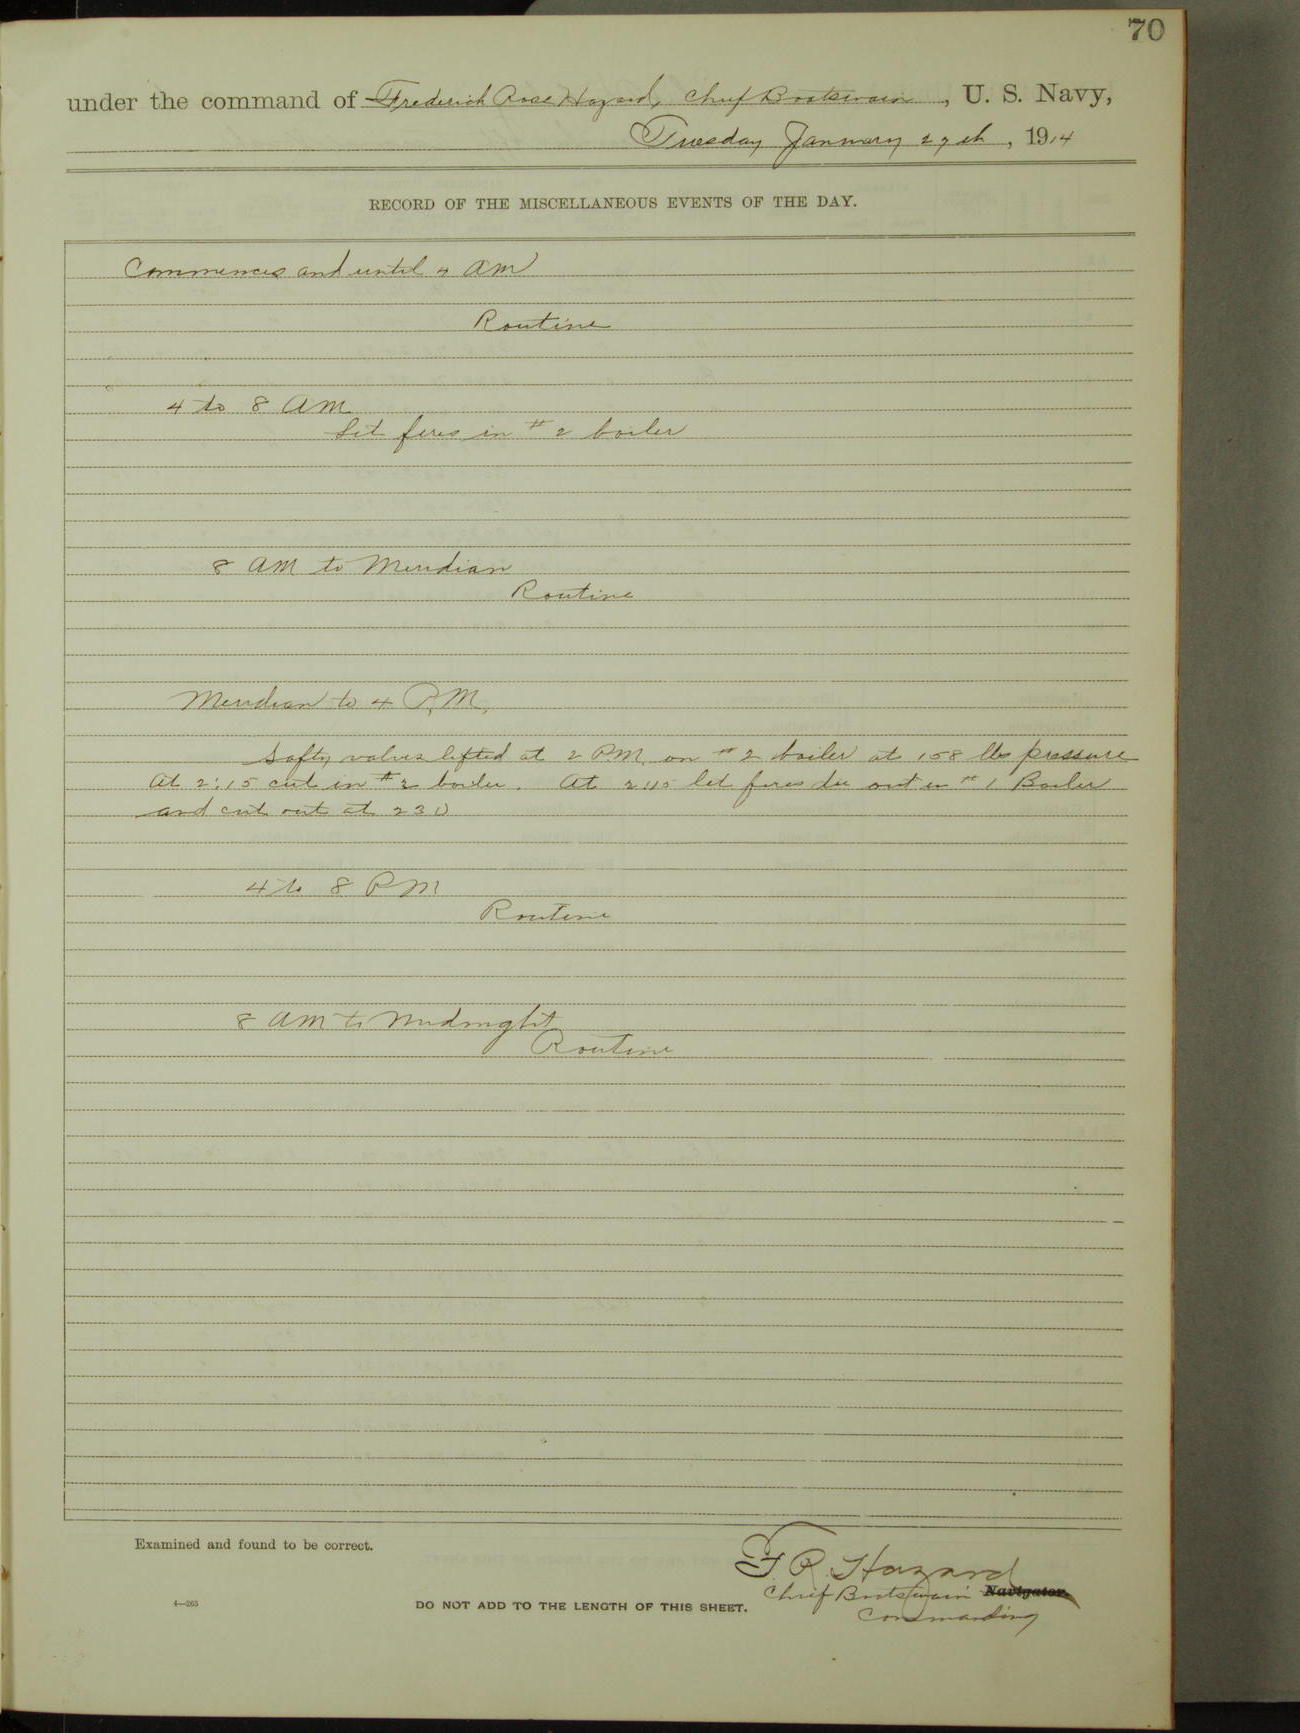 70
under the command of Frederick Rose Hazard, Chief Boatswain, U. S. Navy,
Tuesday January 27th, 1914
RECORD OF THE MISCELLANEOUS EVENTS OF THE DAY.
Commences and until 4 AM
Routine
4 to 8 AM
Lit fires in #2 boiler
8 AM to Meridian
Routine
Meridian to 4 P.M.
Safty valves lifted at 2 PM on #2 boiler at 158 lbs pressure
At 2:15 cut in #2 boiler. At 2:15 let fires die out in #1 Boiler
and cut out at 230
4 to 8 PM
Routine
8 AM to Midnight
Routine
Examined and found to be correct.
F. R. Hazard
Chief Boatswain Navigator.
Commanding
4—265
DO NOT ADD TO THE LENGTH OF THIS SHEET.